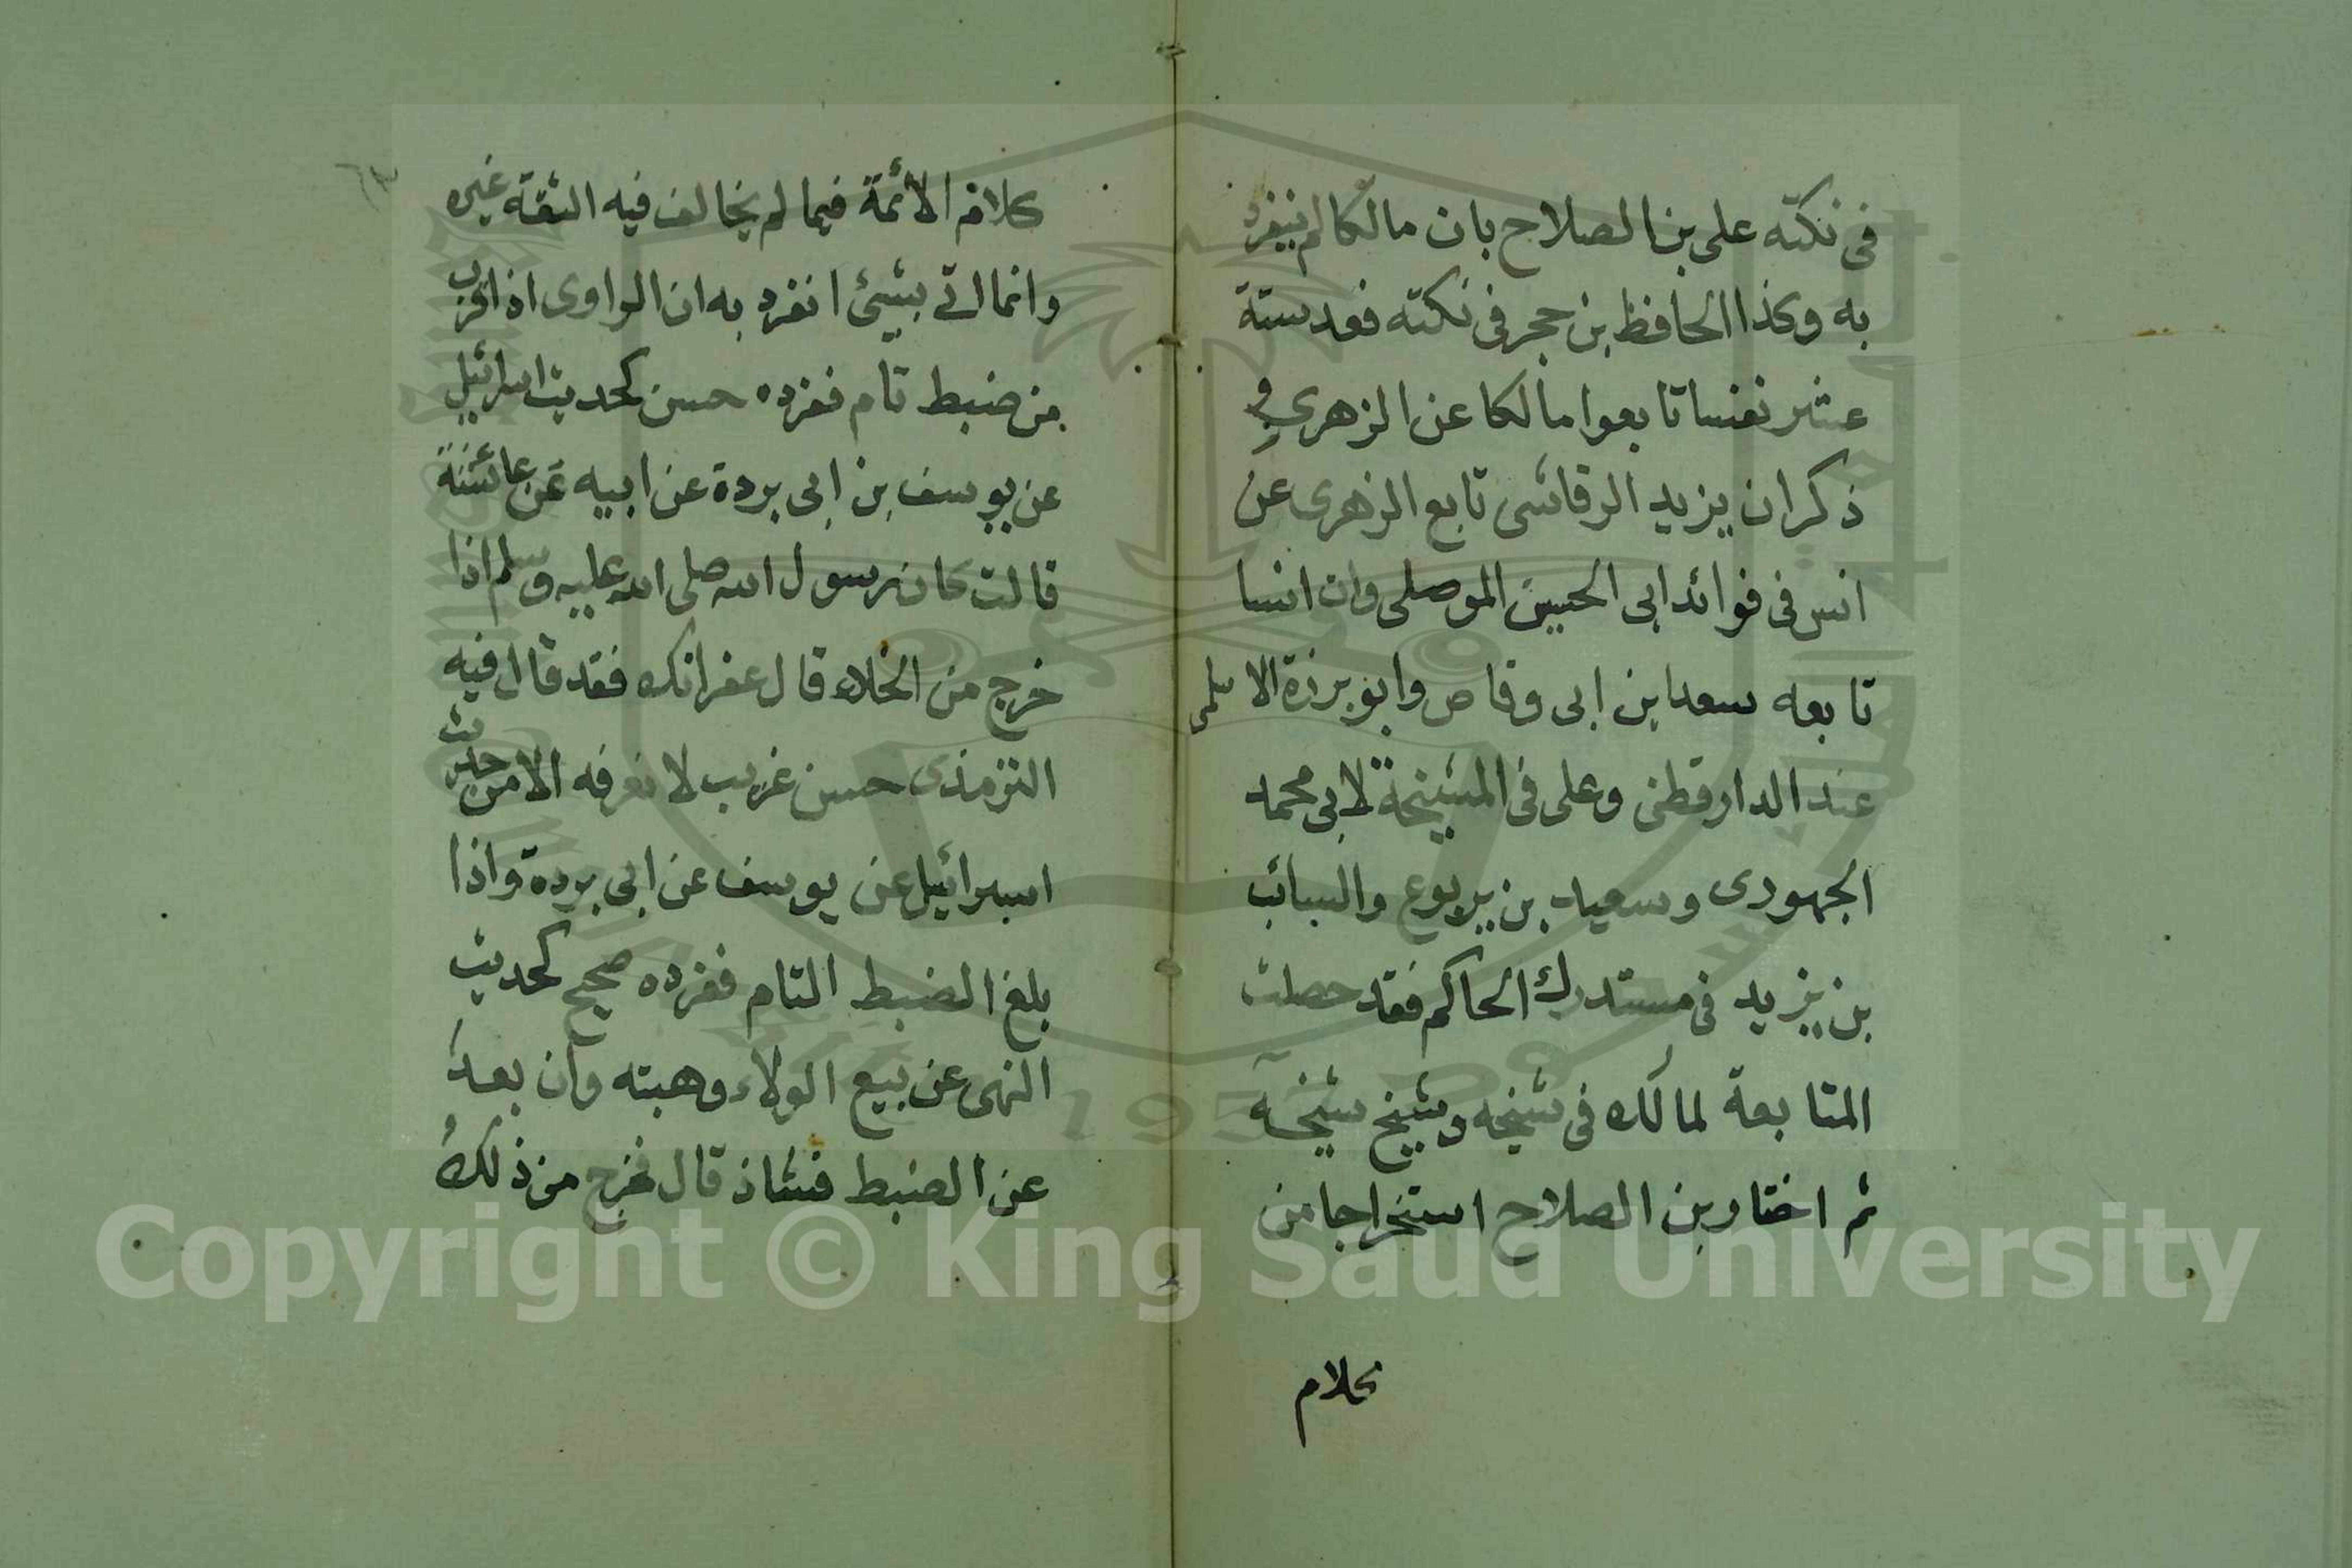 فى نكته على بن الصلاح بان مالكا لم ينفرد
به وكذا الحافظ بن حجر فى نكته فعد ستة
عشر نفسا تابعوا مالكا عن الزهرى و
ذكر ان يزيد الرقاشى تابع الزهرى عن
انس فى فوائد ابى الحسين الموصلى وان انسا
تابعه سعد ابن ابى وقاص وابو برزة الاسلمى
عند الدارقطنى وعلى فى المشيخة لابى محمد
الجهودى وسعيد بن يربوع والسائب
بن يزيد فى مستدرك الحاكم فقد حصلت
المتابعة لمالك فى شيخه وشيخ شيخه
ثم اختار بن الصلاح استخراجا من
كلام
٦٣
كلام الائمة فيما لم يخالف فيه الثقة غيره
وانما اتى بشيئ انفرد به ان الراوى اذا قرب
من ضبط تام ففرده حسن كحديث اسرائيل
عن يوسف بن ابى بردة عن ابيه عن عائشة
قالت كان رسول الله صلى الله عليه وسلم اذا
خرج من الخلاء قال غفرانك فقد قال فيه
الترمذى حسن غريب لا نعرفه الا من حديث
اسرائيل عن يوسف عن ابى بردة واذا
بلغ الضبط التام ففرده صحيح كحديث
النهى عن بيع الولاء وهبته وان بعد
عن الضبط فشاذ قال فخرج من ذلك
Copyright © King Saud University